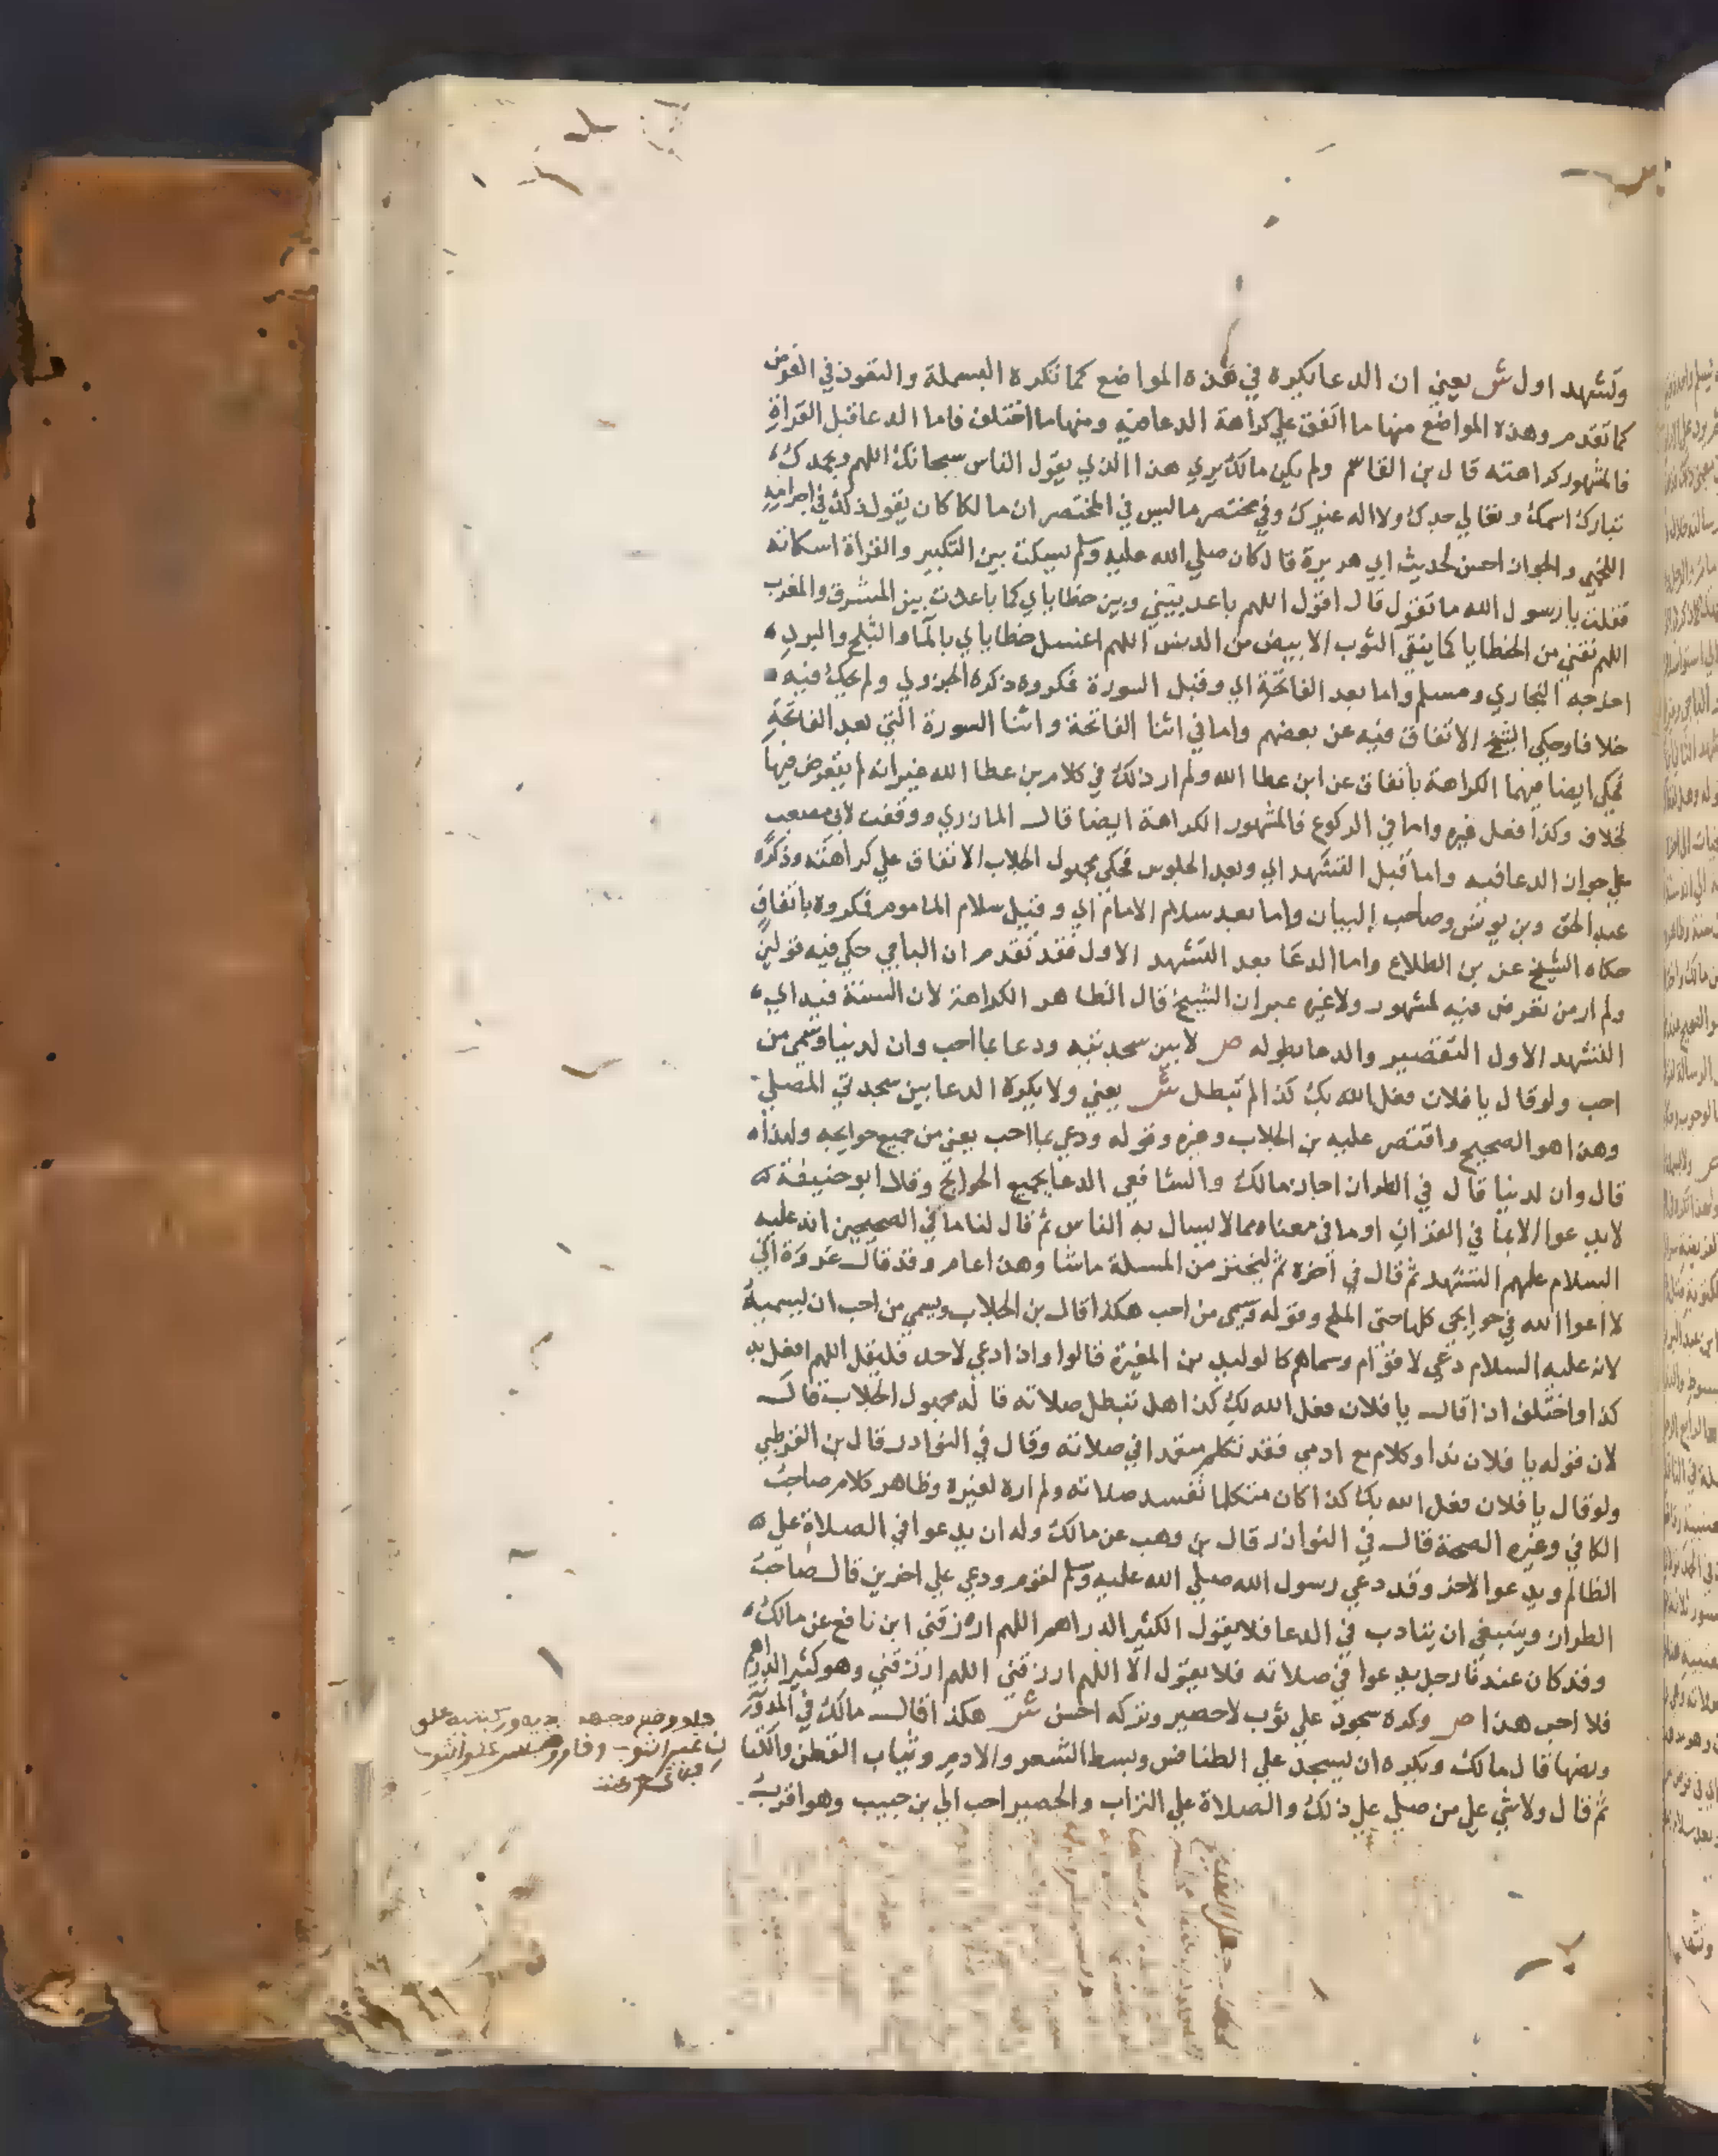 وتشهد اول ش يعني ان الدعا يكره في هذه المواضع كما تكره البسملة والتعوذ في الفرض
كما تقدم وهذه المواضع منها ما اتفق علي كراهة الدعا فيه ومنها ما اختلف فاما الدعا قبل القراة
فالمشهور كراهته قال بن القاسم ولم يكن مالك يري هذا الذي يقول الناس سبحانك اللهم وبحمدك
تبارك اسمك وتعالي جدك ولا اله غيرك وفي مختصر ما ليس في المختصر ان مالكا كان يقول ذلك في احرامه
اللخمي والجواز احسن لحديث ابي هريرة قال كان صلي الله عليه وسلم يسكت بين التكبير والقراة اسكاته
فقلت يا رسول الله ما تقول قال اقول اللهم باعد بيني وبين خطاياي كما باعدت بين المشرق والمغرب
اللهم نقني من الخطايا كما ينقي الثوب الابيض من الدنس اللهم اغسل خطاياي بالما والثلج والبرد
اخرجه البخاري ومسلم واما بعد الفاتحة اي وقبل السورة فكروه ذكره الجزولي ولم يحك فيه
خلافا وحكي الشيخ الاتفاق فيه عن بعضهم واما في اثنا الفاتحة واثنا السورة التي بعد الفاتحة
فحكي ايضا فيهما الكراهة باتفاق عن ابن عطا الله ولم ار ذلك في كلام بن عطا الله غير انه لم يتعرض فيها
لخلاف وكذا فعل غيره واما في الركوع فالمشهور الكراهة ايضا قال المازري ووقفت لابي مصعب
علي جواز الدعا فيه واما قبل التشهد اي وبعد الجلوس فحكي مجهول الجلاب الاتفاق علي كراهته وذكره
عبد الحق وبن يونس وصاحب البيان واما بعد سلام الامام اي وقبل سلام الماموم فكروه باتفاق
حكاه الشيخ عن بن الطلاع واما الدعا بعد التشهد الاول فقد تقدم ان الباجي حكي فيه قولين
ولم ار من تعرض فيه لمشهور ولا غيره غير ان الشيخ قال الظاهر الكراهة لان السنة فيه اي
التشهد الاول التقصير والدعا يطوله ص لا بين سجدتيه ودعا بما احب وان لدنيا وسمي من
احب ولو قال يا فلان فعل الله بك كذا لم تبطل ش يعني ولا يكره الدعا بين سجدتي المصلي
وهذا هو الصحيح واقتصر عليه بن الجلاب وغيره وقوله ودعي بما احب يعني من جميع حوايجه ولهذا
قال وان لدنيا قال في الطراز اجاز مالك والشافعي الدعا بجميع الحوايج وقال ابو حنيفة
لا يدعوا الا بما في القران او ما في معناه مما لا يسال به الناس ثم قال لنا ما في الصحيحين انه عليه
السلام علمهم التشهد ثم قال في اخره ثم ليتخير من المسلة ما شا وهذا عام وقد قال عروة اني
لا ادعوا الله في حوايجي كلها حتي الملح وقوله وسمي من احب هكذا قال بن الجلاب ويسمي من احب ان يسميه
لانه عليه السلام دعي لاقوام وسماهم كالوليد بن المغيرة قالوا واذا دعي لاحد فليقل اللهم افعل به
كذا واختلف اذا قال يا فلان فعل الله بك كذا هل تبطل صلاته قاله مجهول الجلاب قال
لان قوله يا فلان ندا وكلام مع ادمي فقد تكلم متعمدا في صلاته وقال في النوادر قال بن القرطبي
ولو قال يا فلان فعل الله بك كذا كان متكلما تفسد صلاته ولم اره لغيره وظاهر كلام صاحب
الكافي وغيره الصحة قال في النوادر قال بن وهب عن مالك وله ان يدعوا في الصلاة علي
الظالم ويدعوا لاخر وقد دعي رسول الله صلي الله عليه وسلم لقوم ودعي علي اخرين قال صاحب
الطراز وينبغي ان يتادب في الدعا فلا يقول الكثير الدراهم اللهم ارزقني ابن نافع عن مالك
وقد كان عندنا رجل يدعوا في صلاته فلا يقول الا اللهم ارزقني اللهم ارزقني وهو كثير الدراهم
فلا احب هذا ص وكره سجود علي ثوب لا حصير وتركه احسن ش هكذا قال مالك في المدونة
ونصها قال مالك ويكره ان يسجد علي الطنافس وبسط الشعر والادم وثياب القطن والكتان
ثم قال ولا شي علي من صلي علي ذلك والصلاة علي التراب والحصير احب الي بن حبيب وهو اقرب